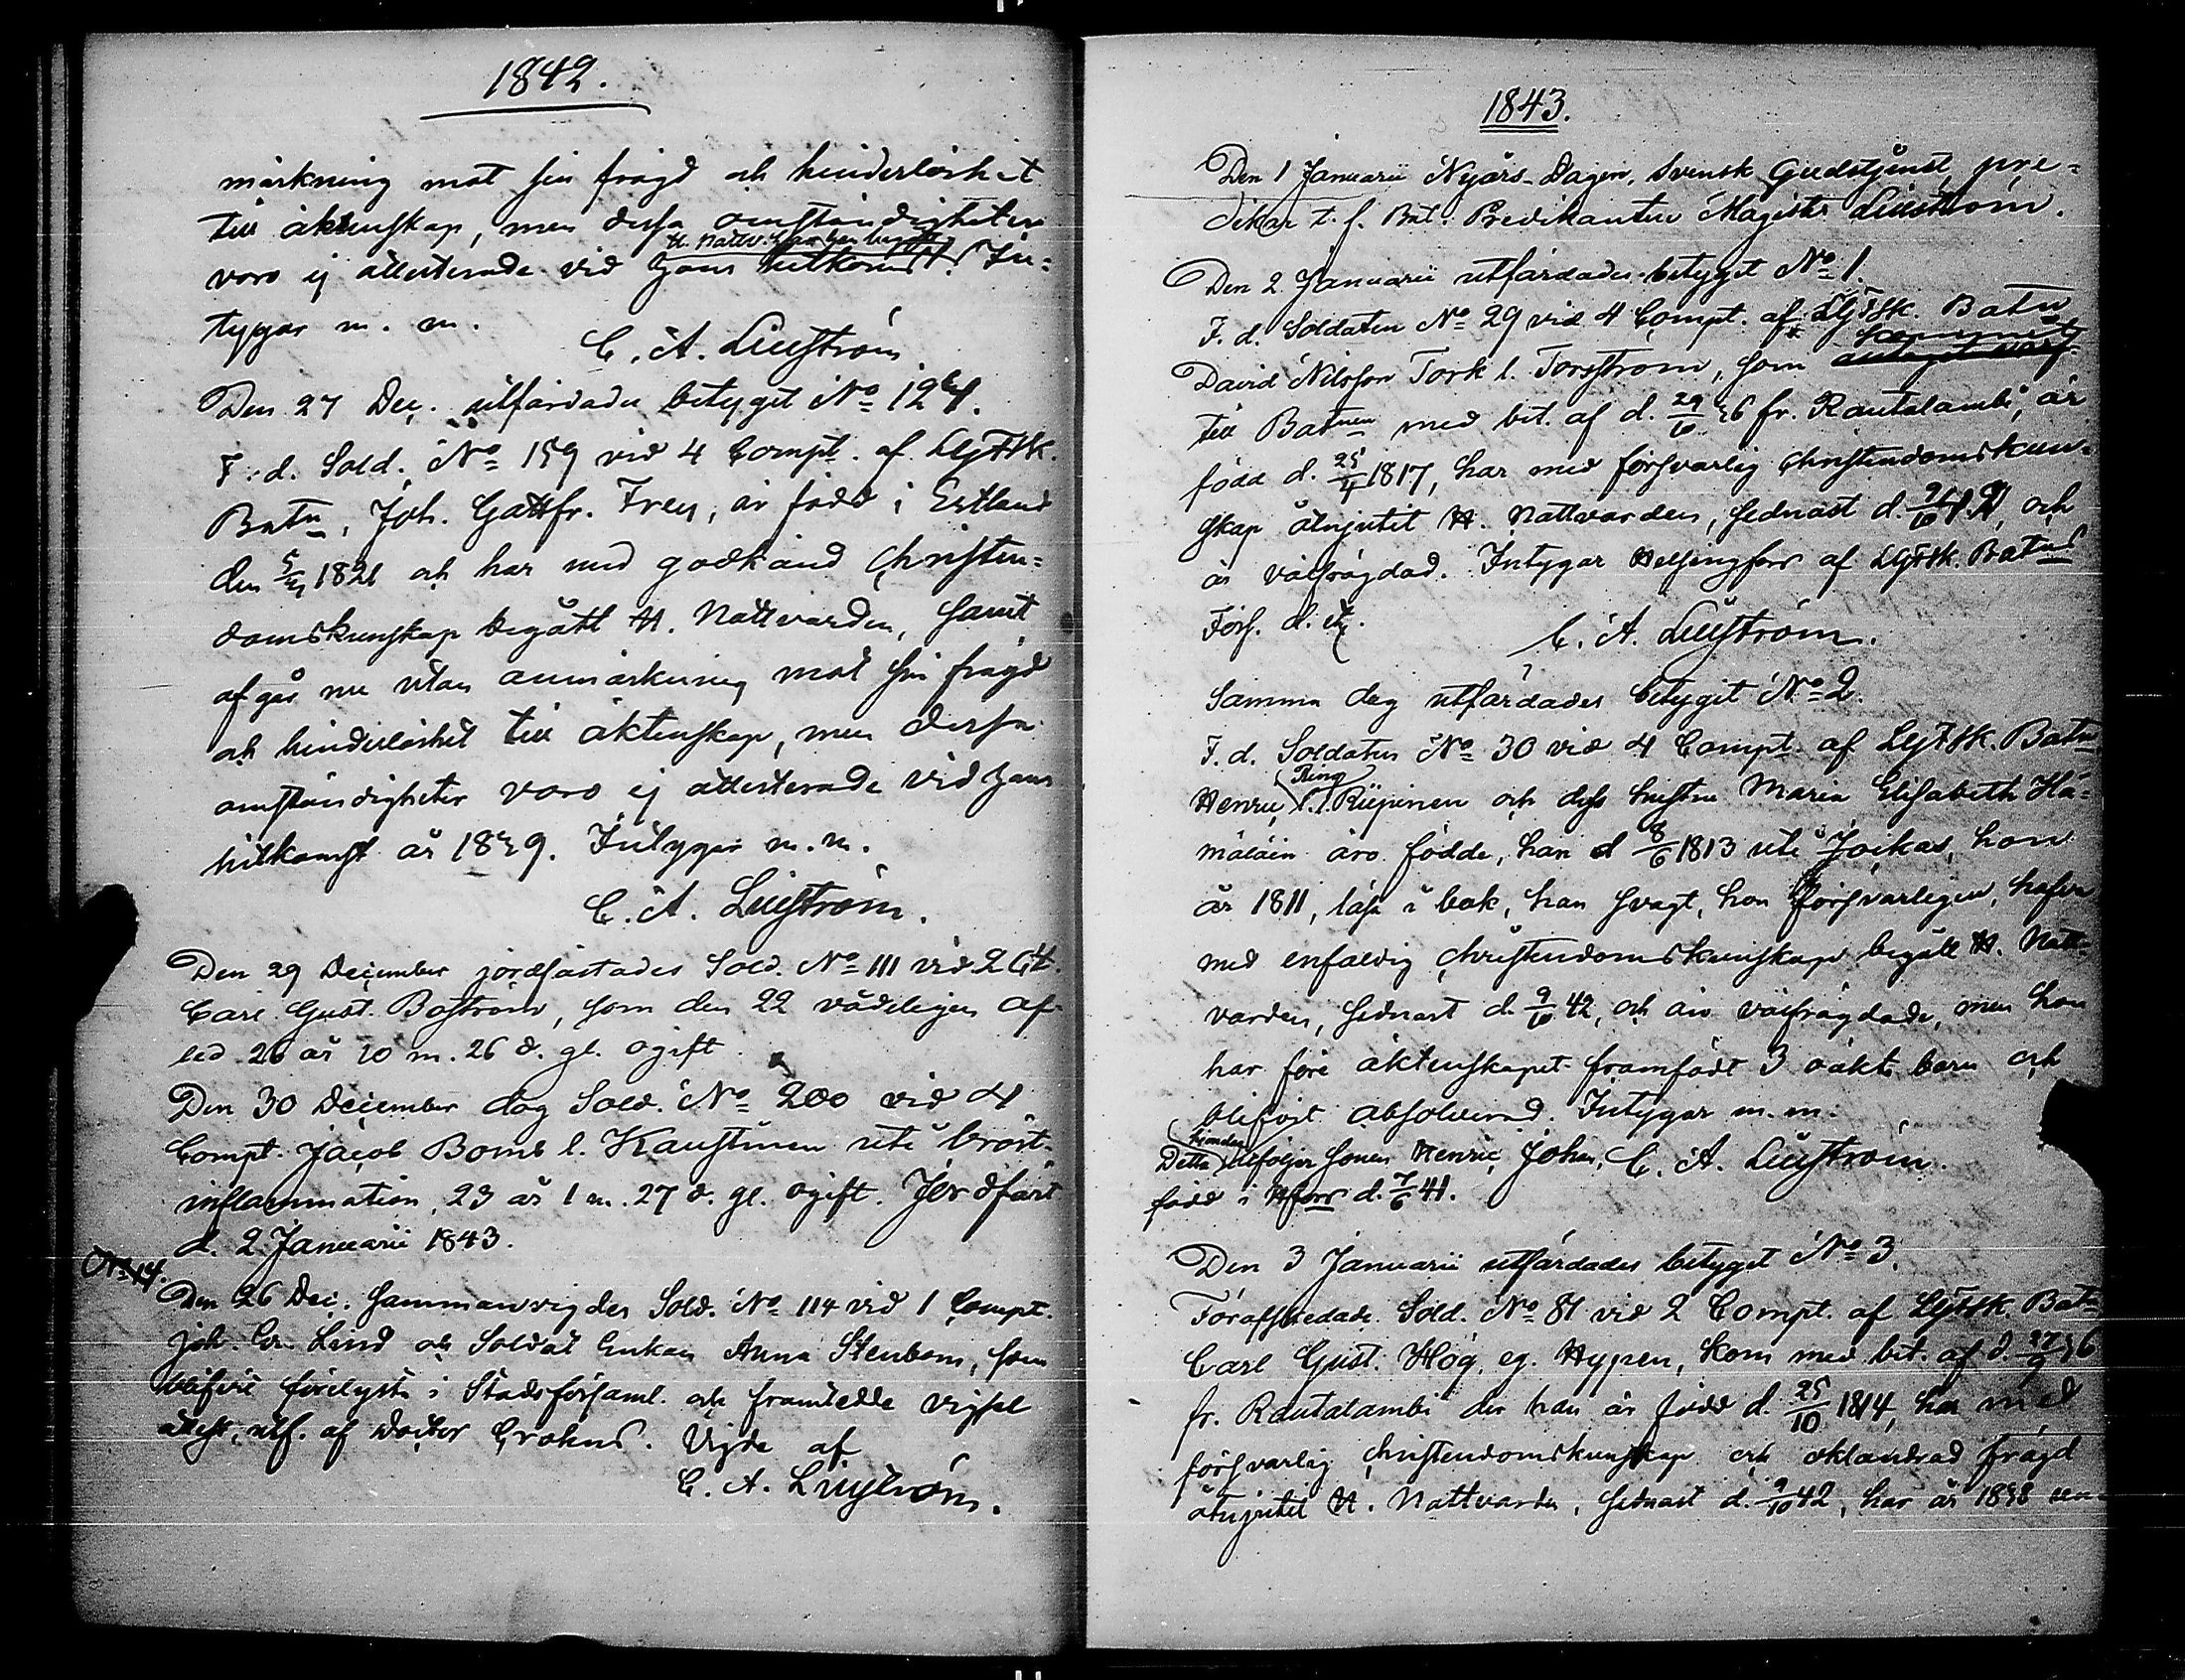 1842.
märkning mot sin frägd och hinderlöshet
till äktenskap, men dessa omständigheter
H. Nattv:s
voro ej attesterade vid hans hitkomst. In-
tygar m. m.
C. A. Liliström
Den 27 Dec. utfärdades betyget No 124.
F. d. Sold. No 159 vid 4 Compt. af LgFSk.
Batn, Joh. Gottfr. Frey, är född i Estland
den 1821 och har med godkänd Christen-
domskunskap begått H. Nattvarden, samt
afgår nu utan anmärkning mot sin frägd
och hinderlöshet till äktenskap, men dessa
omständigheter voro ej attesterade vid hans
hitkomst år 1839. Intygar m. m.
C. A. Liliström.
Den 29 December jordfästades Sold. No 111 vid 2 Ct.
Carl Gust. Boström, som den 22 vådeligen af-
led 26 år 10 m. 26 d. gl. ogift.
Den 30 December dog Sold. No 200 vid 4
Compt. Jacob Bomb l. Kaustinen uti bröst-
inflammation, 23 år 1 m. 27 d. gl. ogift. Jordfäst
d. 2 Januarii 1843.
No 14.
Den 26 Dec. sammanvigdes Sold. No 114 vid 1 Compt.
Joh. Er. Lind och Soldat Enkan Anna Stenbom, som
blifvit förelysta i Stadsförsaml. och framtedde vigsel
attest, utf. af Doctor Crohns. Vigde af
C. A. Liliström.
1843.
Den 1 Januarii Nyårs-Dagen, Svensk Gudstjenst, pre-
dikar t. f. Bat. Predikanten Magister Liliström.
Den 2 Januarii utfärdades betyget No 1.
F. d. Soldaten No 29 vid 4 Compt. af LgFSk. Batn
kommit
David Nilsson Tork l. Torström, som antagit värf
till Batnen med bet. af d. 29/6 36 fr. Rautalambi, är
född d. 25/4 1817, har med försvarlig Christendomskun-
skap åtnjutit H. Nattvarden, sednast d. 9/10 42, och
är välfrägdad. Intygar Helsingfors af LgFSk. Batns
Förs. d. etc.
C. A. Liliström.
Samma dag utfärdades betyget No 2.
F. d. Soldaten No 30 vid 4 Compt. af LgFSk. Batn
Ring
Henric l. Riipinen och dess hustru Maria Elisabeth Hä-
mäläin äro födde, han d 8/6 1813 uti Joikas, hon
år 1811, läsa i bok, han svagt, hon försvarligen, hafva
med enfaldig Christendomskunskap begått H. Natt-
varden, sednast d. 9/10 42, och äro välfrägdade, men hon
har före äktenskapet framfödt 3 oäkta barn och
blifvit absolverad. Intygar m. m.
hjonelag
Detta åtföljer sonen Henric Johan, C. A. Liliström.
född i Hfors d. 7/6 41.
Den 3 Januarii utfärdades betyget No 3.
Förafskedade Sold. No 81 vid 2 Compt. af LgFSk. Batn
Carl Gust. Hög, eg. Hyppen, kom med bet. af d. 27/9 36
fr. Rautalambi der han är född d. 25/10 1814, har med
försvarlig Christendomskunskap och oklandrad frägd
åtnjutit H. Nattvarden, sednast d. 9/10 42, har år 1838 un-